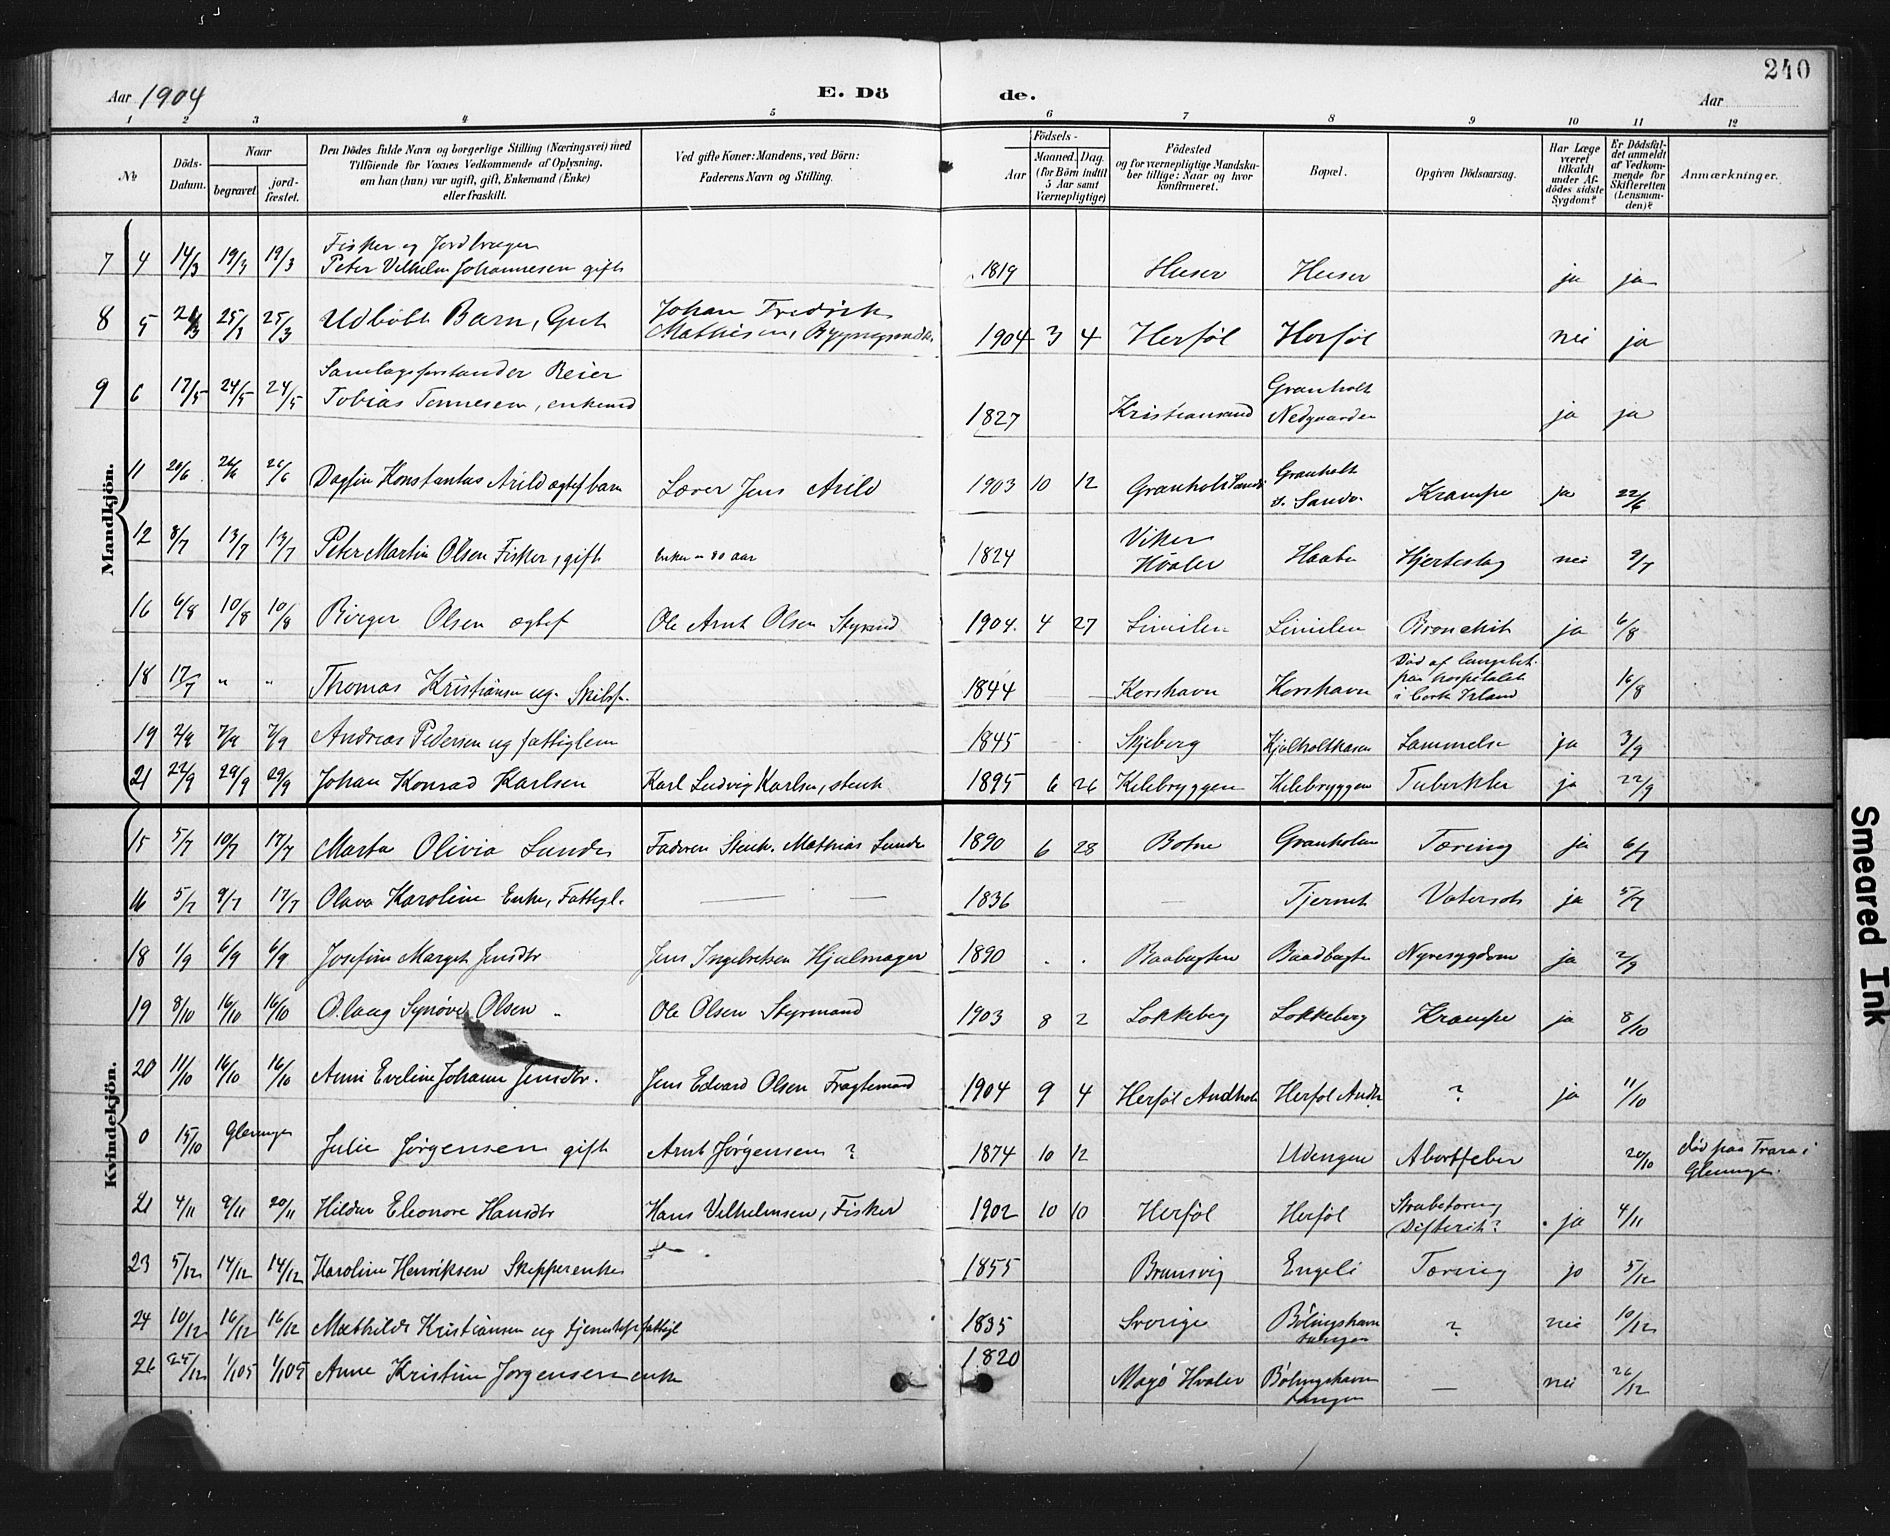 240
Aar 1904
E. Dö de.
Aar
1 2 3 4 5 6 7 8 9 10 11 12
No
Döds-Datum.
Naar
begravet.
jord-fæstet.
Den Dödes fulde Navn og borgerlige Stilling (Næringsvei) med
Tilföiende for Voxnes Vedkommende af Oplysning,
om han (hun) var ugift, gift, Enkemand (Enke)
eller fraskilt.
Ved gifte Koner: Mandens, ved Börn:
Faderens Navn og Stilling.
Födsels-
Aar
Maaned. Dag.
(for Börn indtil
5 Aar samt
Værnepligtige)
Födested
og for værnepligtige Mandska-
ber tillige: Naar og hvor
konfirmeret.
Bopæl.
Opgiven Dödsaarsag.
Har Læge
været
tilkaldt
under Af-
dödes sidste
Sygdom?
Er Dödsfal-
det anmeldt
af Vedkom-
mende for
Skifteretten
(Lensman-
den)?
Anmærkninger.
Mandkjön.
Fisker og Jordbruger
7 4 14/3 19/3 19/3 Peter Vilhelm Johannesen gift 1819 Huser Huser ja ja
8 5 25/3 25/3 Udöbt Barn, Gut Johan Fredrik
Mathisen, 1904 3 4 Herföl Herföl nei ja
9 6 17/5 24/5 24/5 Samlagsforstander Reier
Tobias Tønnesen, enkemd 1827 Kristiansand Granholt
Nedgaarden ja ja
11 20/6 26/6 26/6 Dagfin Konstantus Arild ægtef barn Lærer Jens Arild 1903 10 12 Granholt Sandø Granholt
s. Sandø. Krampe ja 22/6
12 8/7 13/7 13/7 Peter Martin Olsen Fisker, gift enke = 80 aar 1824 Viker
Hvaler Haabe Hjerteslag nei 9/7
16 6/8 10/8 10/8 Birger Olsen ægtef Ole Arnt Olsen Styrmd 1904. 4 27 Bronchit ja 6/8
18 17/7 " " Thomas Kristiansen ug. Skibsf. 1844 Korshavn Korshavn Död af lungebet.
paa hospitalet
i Cork Irland 16/8
19 2/9 7/9 7/9 Andreas Pedersen ug fattiglem 1845 Skjeberg Kjølholtkasen Lammelse ja 3/9
21 22/9 29/9 29/9 Johan Konrad Karlsen Karl Ludvig Karlsen, stenh 1895 6 26 Kilebryggen Kilebryggen Tuberkler ja 22/9
Kvindekjön.
15 5/7 10/7 17/7 Marta Olivia Lunde Faderen Stenh. Mathias Lunde 1890 6 28 Botne Granholmen Tæring ja 6/7
16 5/7 9/7 17/7 Olava Karoline Enke, Fattigl. — — 1836 — Tjernet Vatersot ja 5/7
18 1/9 6/9 6/9 Josefine Margit Jensdtr Jens Ingebretsen Hjulmager 1890 . . Baabugten Baadbugten Nyresygdom ja 2/9
19 8/10 16/10 16/10 Olaug Synøve Olsen Ole Olsen Styrmand 1903 8 2 Lokkeberg Lokkeberg Krampe ja 8/10
20 11/10 16/10 16/10 Anni Eveline Johanne Jensdtr. Jens Edvard Olsen Fragtemand 1904 9 4 Herföl Andholm Herföl Andh ? ja 11/10
0 15/10 Glemminge Julie Jørgensen gift Arnt Jørgensen ? 1874 10 12 Udengen Abortfeber 20/10 död paa Trara i
Glemminge.
21 4/11 9/11 20/11 Hildur Eleonore Hansdtr Hans Vilhelmsen, Fisker 1902 10 10 Herföl Herföl Strubetæring
Difterit? ja 4/11
23 5/12 14/12 14/12 Karoline Henriksen Skipperenke 1855 Brunsvig Engeli Tæring ja 5/12
24 10/12 16/12 16/12 Mathilde Kristiansen ug tjenestepi fattigl 1835 Sverige Bölingshavn
tangen ? nei 10/12
26 25/12 1/1 05 1/1 05 Anne Kristine Jørgensen enke 1820 Magø Hvaler Bölingshavn
tangen — nei 26/12
Smeared Ink